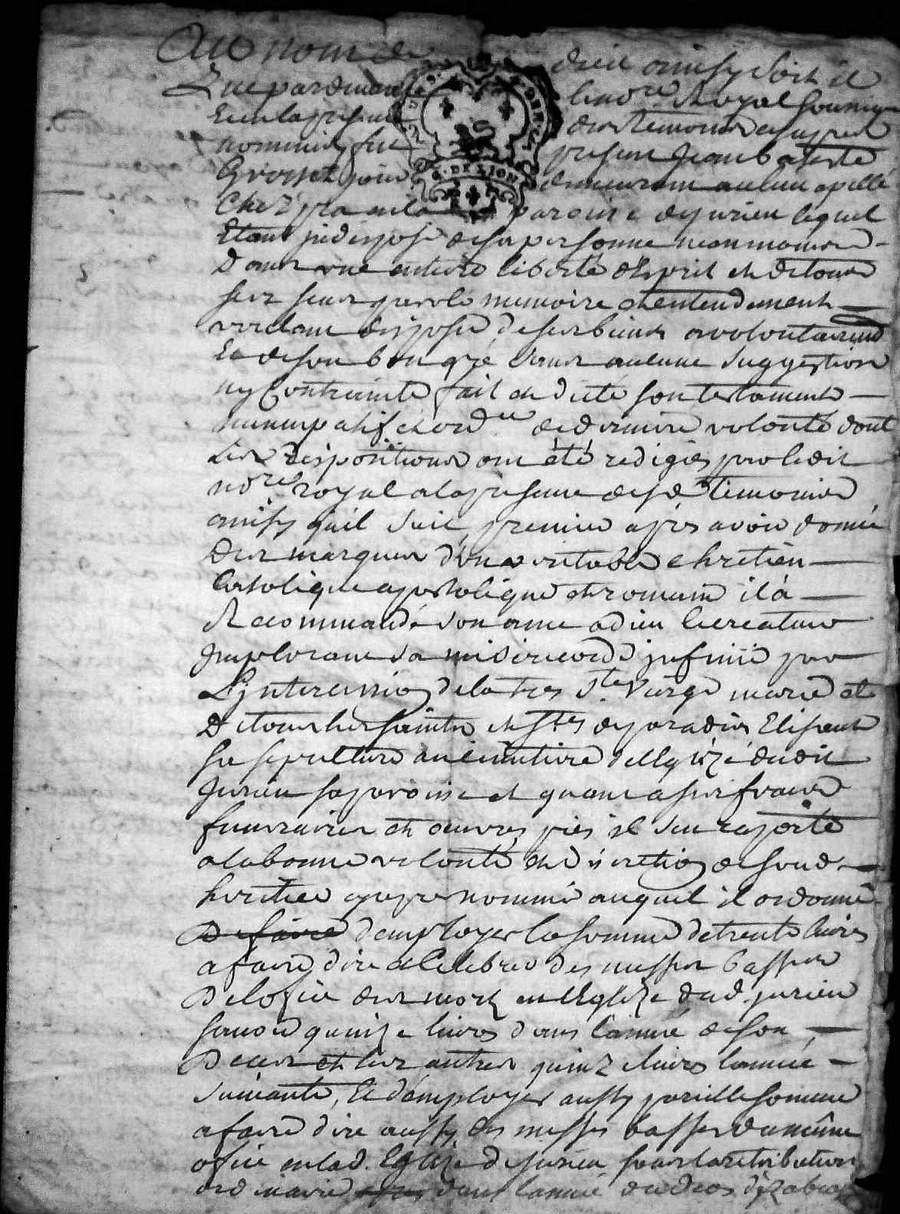 Au nom de dieu ainsy soit il
Que pardevant le no.re Royal soussigné
Et en la presence des temoins cy apres
nommés fut present Jean baptiste
Grosset demeurant au lieu apellé
Chez paroisse de jurieu lequel
Etant indisposé de sa personne neanmoins
Dans une entiere liberté d'esprit et de tous
ses sens parole memoire et entendement
voulant disposé de ses biens a volontairem.t
Et de son bon gré sans aucune suggestion
ny Contrainte fait et dicte son testament
nuncupatif et ord.re de derniere volonté dont
Les dispositions ont été redigés par ledit
no.re royal a la presence desd. temoins
ainsy quil suit premier apres avoir donné
Des marques d'un veritable chretien
Catolique apostolique et romain il a
Recommandé son ame a dieu le createur
Implorant sa misericorde infinie par
L'intercession de la tres s.te Vierge marie et
De tous les saints et s.tes du paradis Elisant
sa sepulture au cimetiere de l'eglize dudit
Jurieu sa paroisse et quant a ses fraix
funeraires et oeuvres pies il s'en raporte
a la bonne volonté et discretion de son d.
heritier apres nommé auquel il ordonne
De faire d'employer la somme de trente livres
a faire dire et celebrer des messes basses
De l'ofice des morts en l'Eglize dud. jurieu
savoir quinze livres dans l'année de son
Deces et les autres quinze livres l'année
suivante, Et d'employer aussy pareille somme
a faire dire aussy des messes basses du même
ofice en lad. Eglize de jurieu sous la retribution
ordinaire dans l'année du deces
G. DE LION